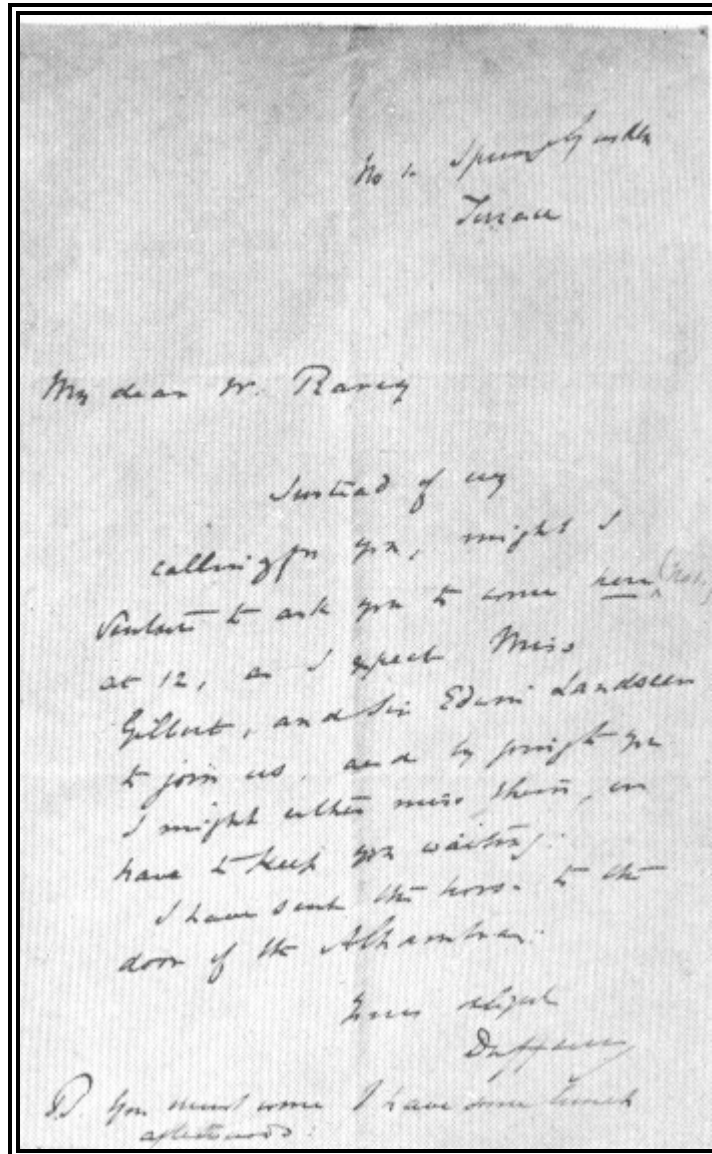 Spring Garden
Terrace
My dear Mr. Rarey
Instead of my
calling for you, might I
venture to ask you to come here
at 12, as I expect Miss
Gilbert, and Sir Edwin Landseer
to join us, and by going to you
I might either miss them, or
have to keep you waiting.
I have sent the horse to the
door of the Alhambra.
Yours
Dufferin
you must come & have some lunch
afterwards.